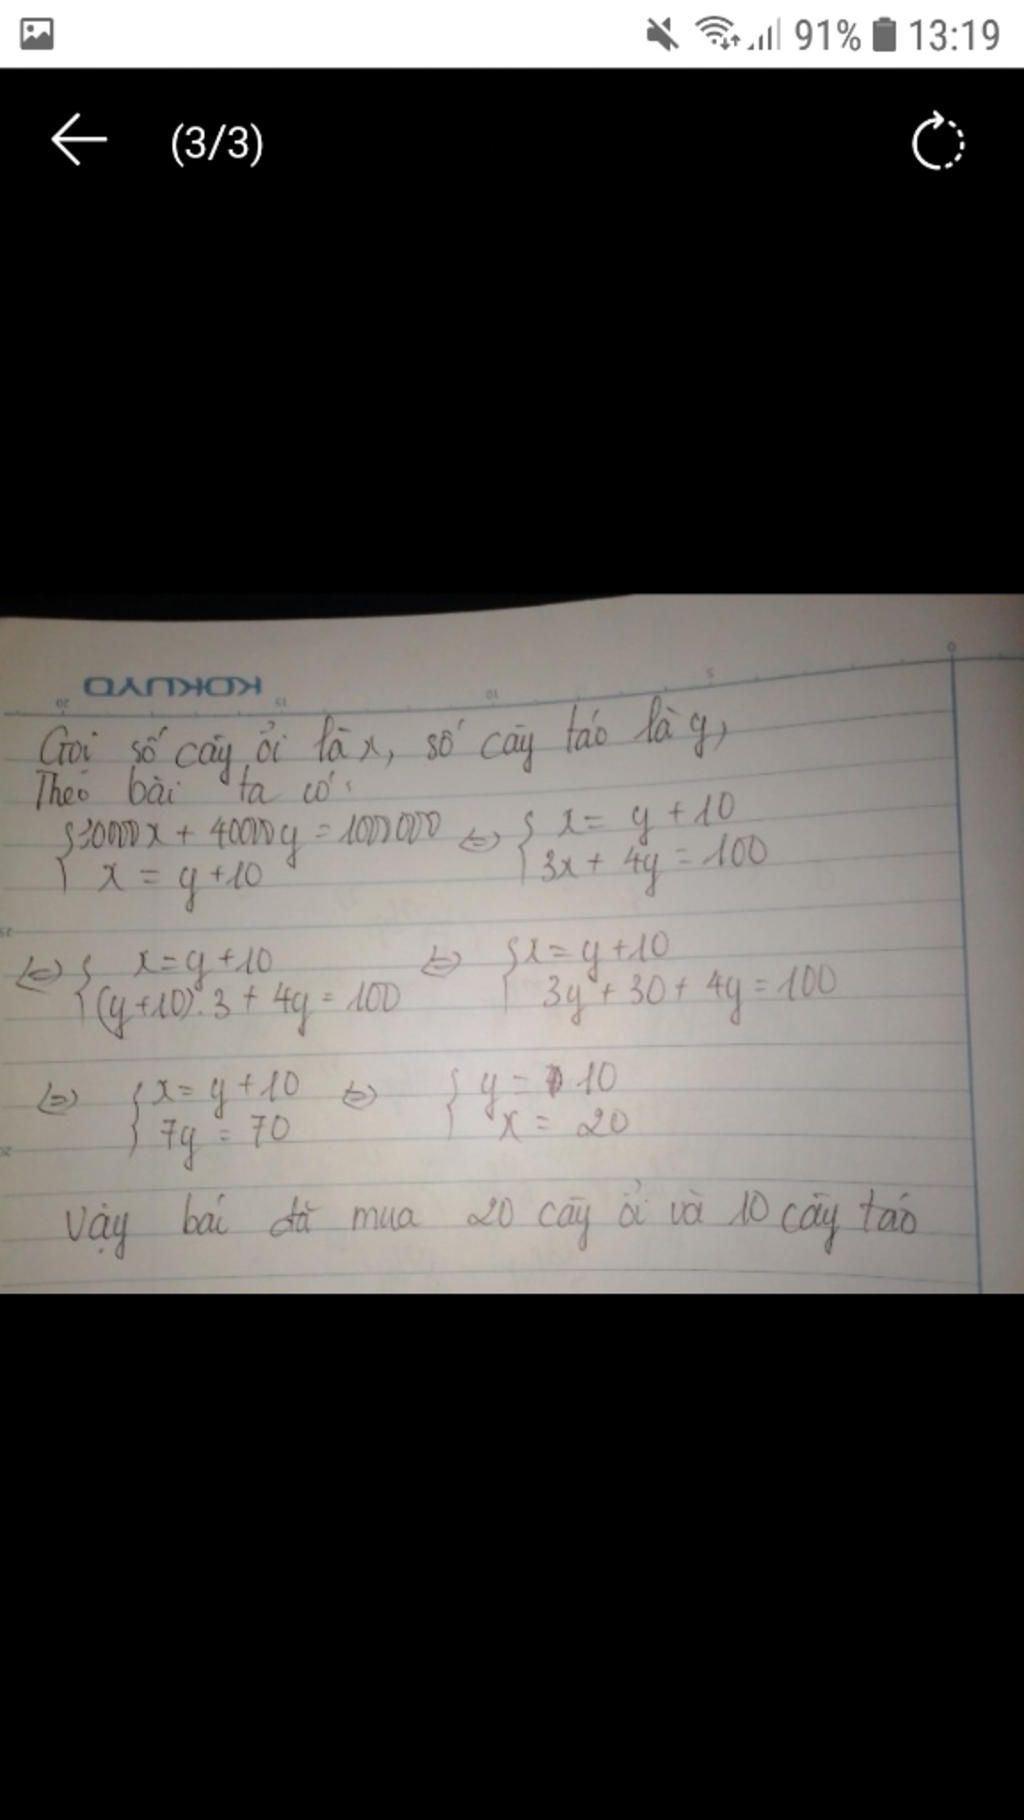 91% 13:19
(3/3)
KOKUYO
Gọi số cây ổi là x, số cây táo là y,
Theo bài ta có:
{ 30000x + 40000y = 1000000 <=> { x = y + 10
x = y + 10 3x + 4y = 100
<=> { x = y + 10 <=> { x = y + 10
(y + 10).3 + 4y = 100 3y + 30 + 4y = 100
<=> { x = y + 10 <=> { y = 10
7y = 70 x = 20
Vậy bác đã mua 20 cây ổi và 10 cây táo